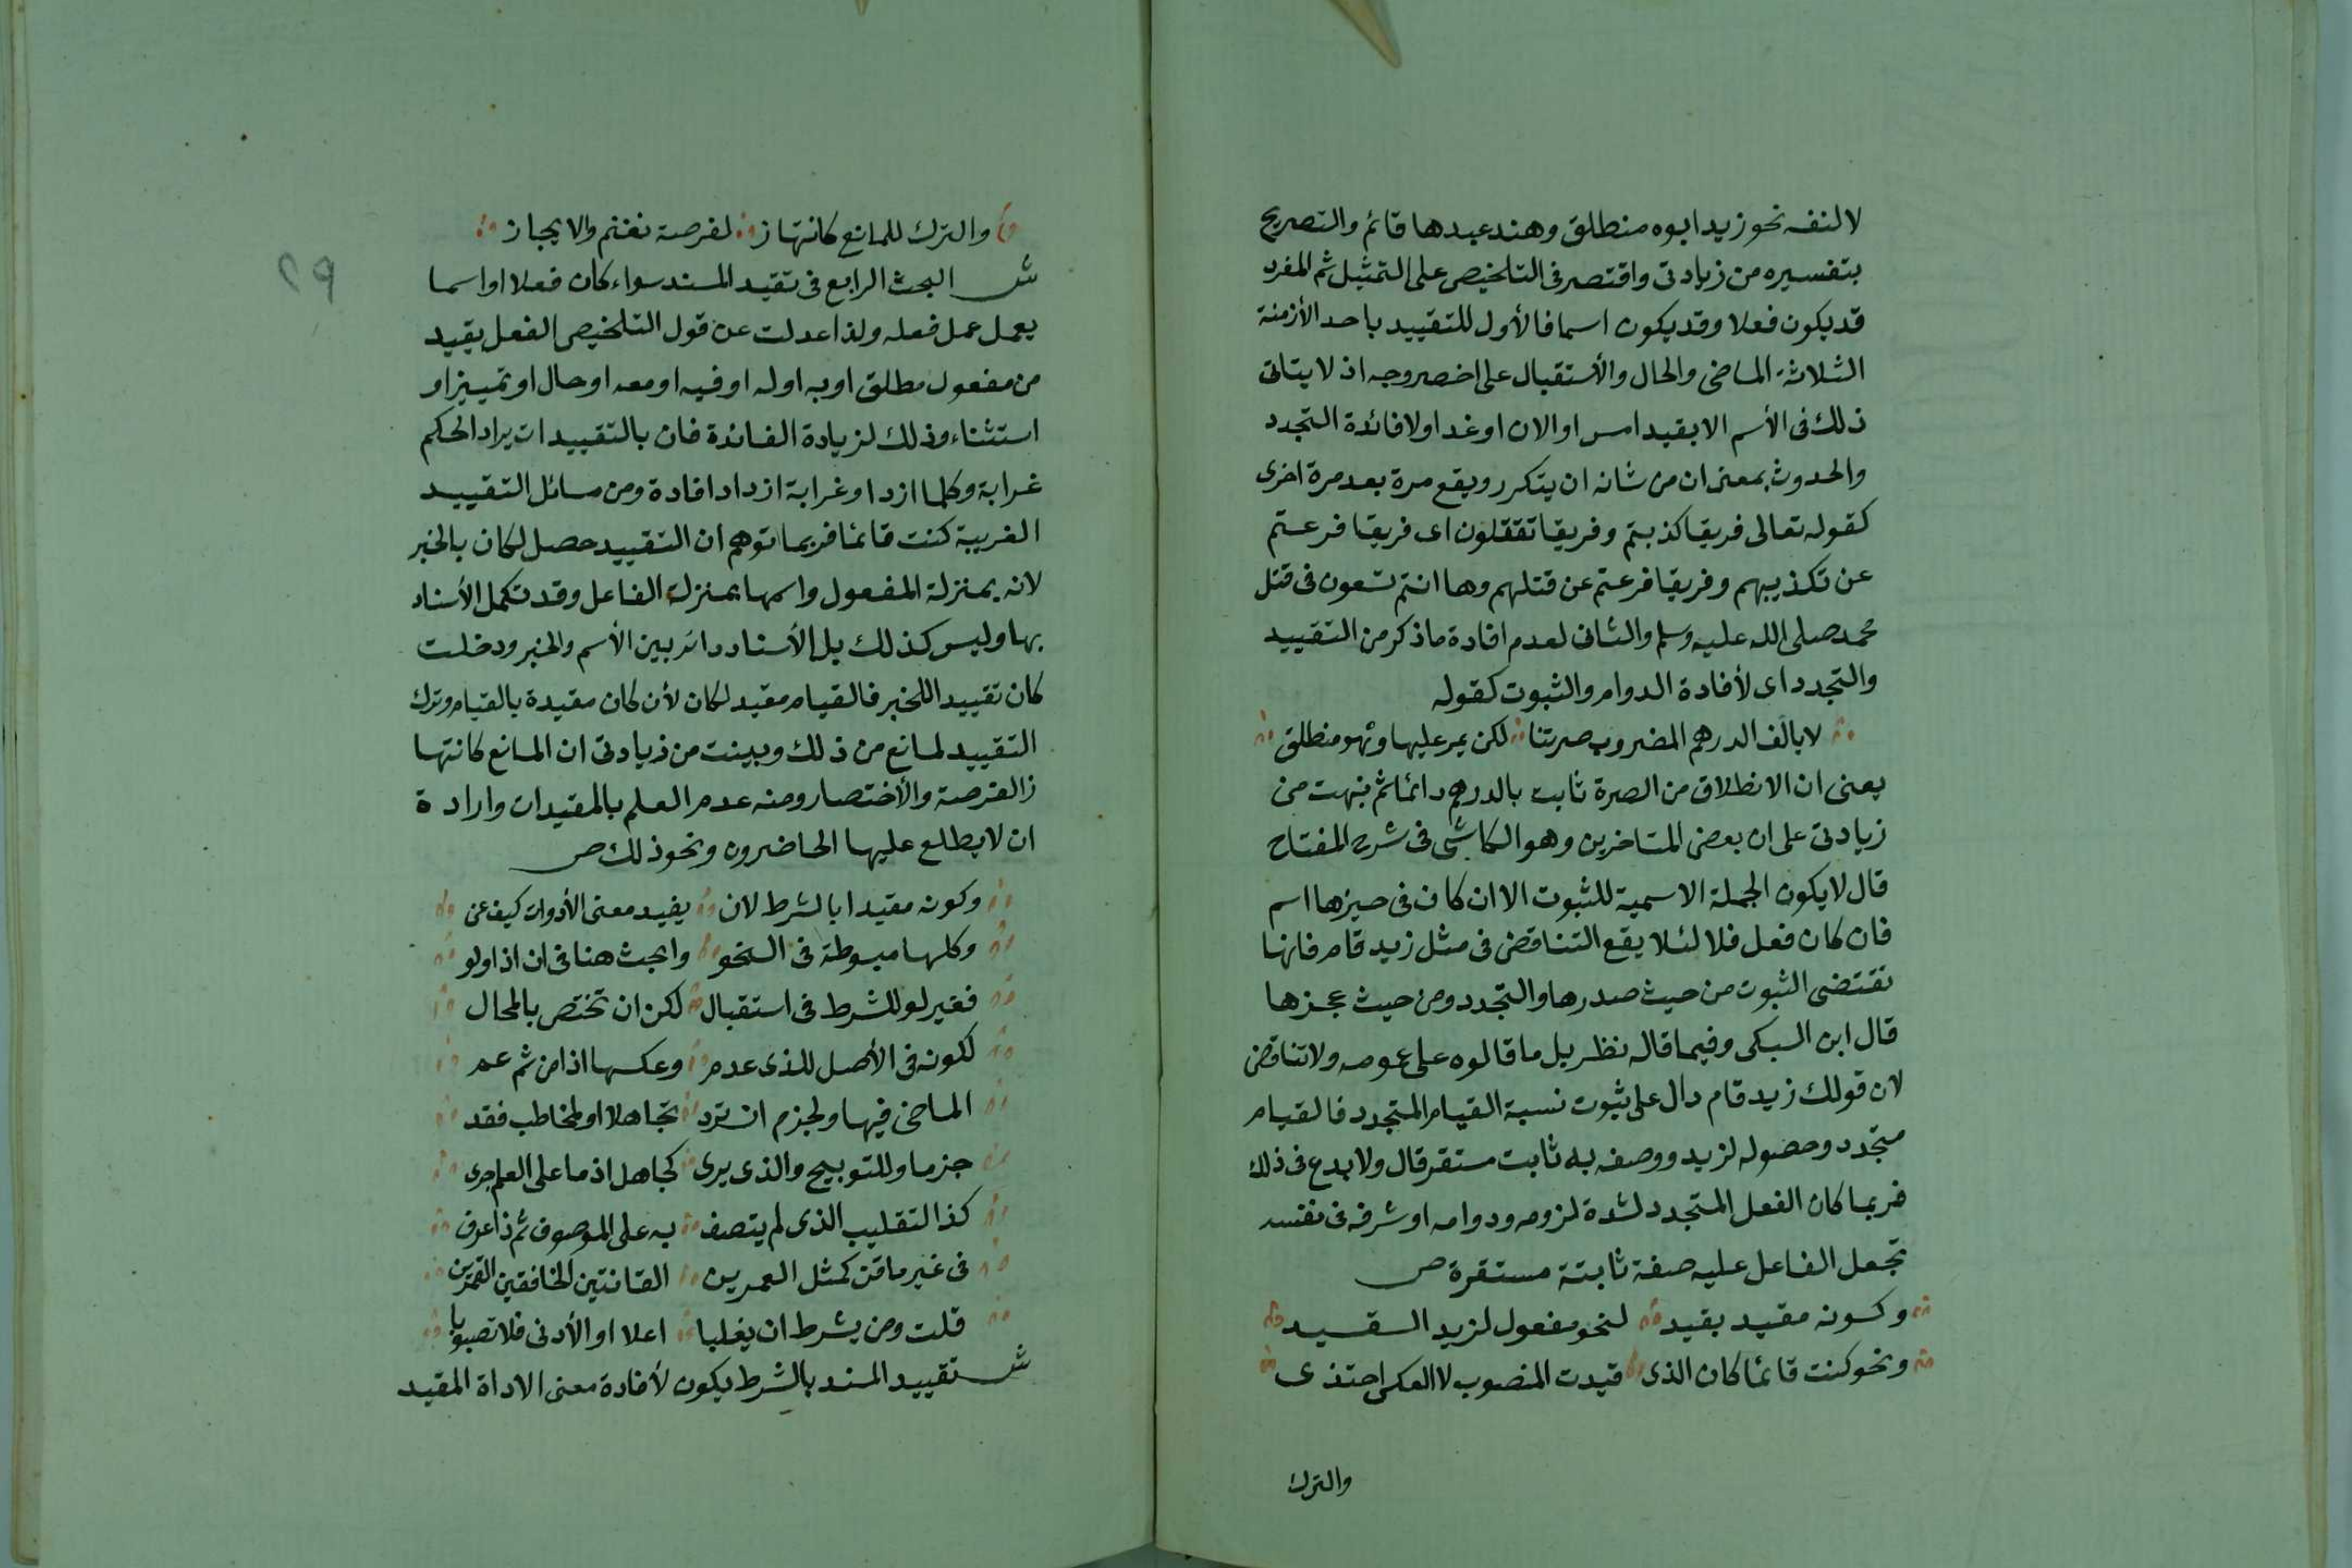 لا لنفسه نحو زيد ابوه منطلق وهند عبدها قائم والتصريح
بتفسيره من زيادتى واقتصر فى التلخيص على التمثيل ثم المفرد
قد يكون فعلا وقد يكون اسما فالأول للتقييد باحد الأزمنة
الثلاثة الماضى والحال والأستقبال على اخصر وجه اذ لا يتاتى
ذلك فى الأسم الا بقيد امس او الان او غدا ولافائدة التجدد
والحدوث بمعنى ان من شانه ان يتكرر ويقع مرة بعد مرة اخرى
كقوله تعالى فريقا كذبتم وفريقا تقتلون اى فريقا فرغتم
عن تكذيبهم وفريقا فرغتم عن قتلهم وها انتم تسعون فى قتل
محمد صلى الله عليه وسلم والثانى لعدم افادة ما ذكر من التقييد
والتجدد اى لأفادة الدوام والثبوت كقوله
لا يالف الدرهم المضروب صرتنا لكن يمر عليها وهو منطلق
يعنى ان الانطلاق من الصرة ثابت بالدرهم دائما ثم نبهت من
زيادتى على ان بعض المتاخرين وهو الكاشى فى شرح المفتاح
قال لا يكون الجملة الاسمية للثبوت الا ان كان فى حيزها اسم
فان كان فعل فلا لئلا يقع التناقض فى مثل زيد قام فانها
تقتضى الثبوت من حيث صدرها والتجدد ومن حيث عجزها
قال ابن السبكى وفيما قاله نظر بل ما قالوه على عومه ولا تناقض
لان قولك زيد قام دال على ثبوت نسبة القيام المتجدد فالقيام
متجدد وحصوله لزيد ووصفه به ثابت مستقر قال ولا بدع فى ذلك
فربما كان الفعل المتجدد لشدة لزومه ودوامه او شرفه فى نفسه
تجعل الفاعل عليه صفة ثابتة مستقرة ص
وكونه مقيد بقيد لنحو مفعول لزيد السقيد
ونحو كنت قائما كان الذى قيدت المنصوب لا العكس احتذى
والترك
٢٩
والترك للمانع كانتهاز لفرصة تغنم والايجاز
ش البحث الرابع فى تقيد المسند سواء كان فعلا او اسما
يعمل عمل فعله ولذا عدلت عن قول التلخيص الفعل يقيد
من مفعول مطلق او به او له او فيه او معه او حال او تمييز او
استثناء وذلك لزيادة الفائدة فان بالتقييدات يراد الحكم
غرابة وكلما ازداد غرابة ازداد افادة ومن مسائل التقييد
الغريبة كنت قائما فربما توهم ان التقييد حصل لكان بالخبر
لانه بمنزلة المفعول واسمها بمنزلة الفاعل وقد تكمل الأسناد
بها وليس كذلك بل الأسناد دائر بين الأسم والخبر ودخلت
كان تقييدا للخبر فالقيام مقيد لكان لأن كان مقيدة بالقيام وترك
التقييد لمانع من ذلك وبينت من زيادتى ان المانع كانتها
ز الفرصة والأختصار ومنه عدم العلم بالمقيدات وارادة
ان لا يطلع عليها الحاضرون ونحو ذلك ص
وكونه مقيدا بالشرط لان يفيد معنى الأدوات كيف عن
وكلها مبسوطة فى النحو وابحث هنا فى ان اذا ولو
فغير لو للشرط فى استقبال لكن ان تختص بالمحال
لكونه فى الأصل للذى عدم وعكسها اذا من ثم عم
الماضى فيها ولجزم ان ترد تجاهلا او لمخاطب فقد
جزما وللتوبيخ والذى يرى كجاهل اذ ما على العلم جرى
كذا لتقليب الذى لم يتصف به على الموصوف ثم ذا عرف
فى غير ما فن كمثل العمرين القانتين الخافقين القمرين
قلت ومن يشرط ان يغلبا اعلا او الأدنى فلا تصوبا
ش تقييد المسند بالشرط يكون لأفادة معنى الاداة المقيد